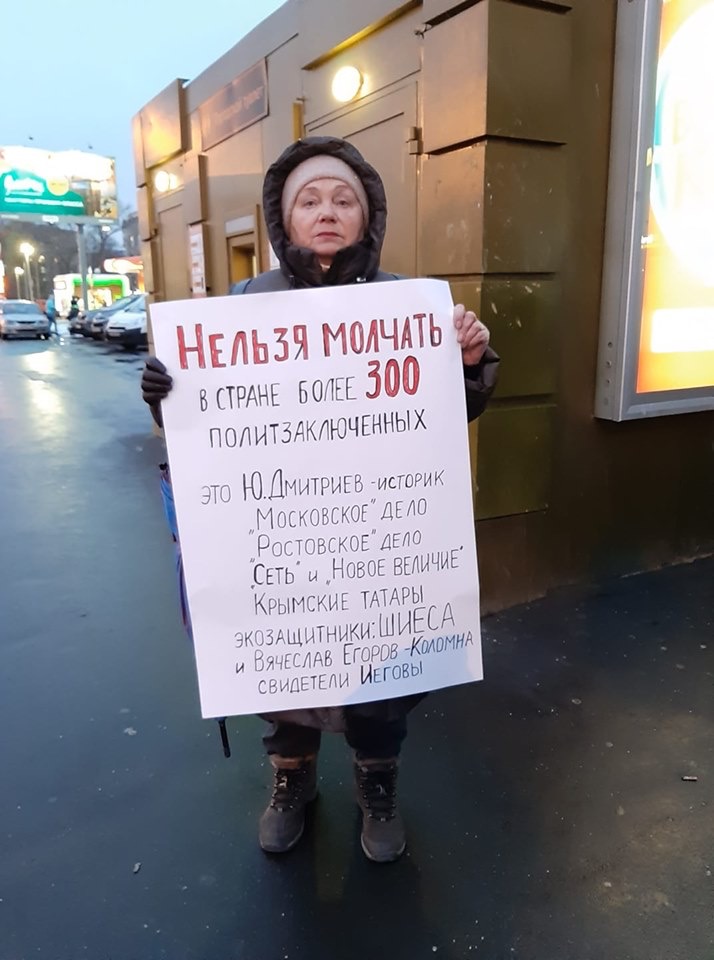 НЕЛЬЗЯ МОЛЧАТЬ
В СТРАНЕ БОЛЕЕ 300
ПОЛИТЗАКЛЮЧЕННЫХ
ЭТО Ю.ДМИТРИЕВ - ИСТОРИК
"МОСКОВСКОЕ" ДЕЛО
"РОСТОВСКОЕ" ДЕЛО
"СЕТЬ" И "НОВОЕ ВЕЛИЧИЕ"
КРЫМСКИЕ ТАТАРЫ
ЭКОЗАЩИТНИКИ: ШИЕСА
И ВЯЧЕСЛАВ ЕГОРОВ - КОЛОМНА
СВИДЕТЕЛИ ИЕГОВЫ